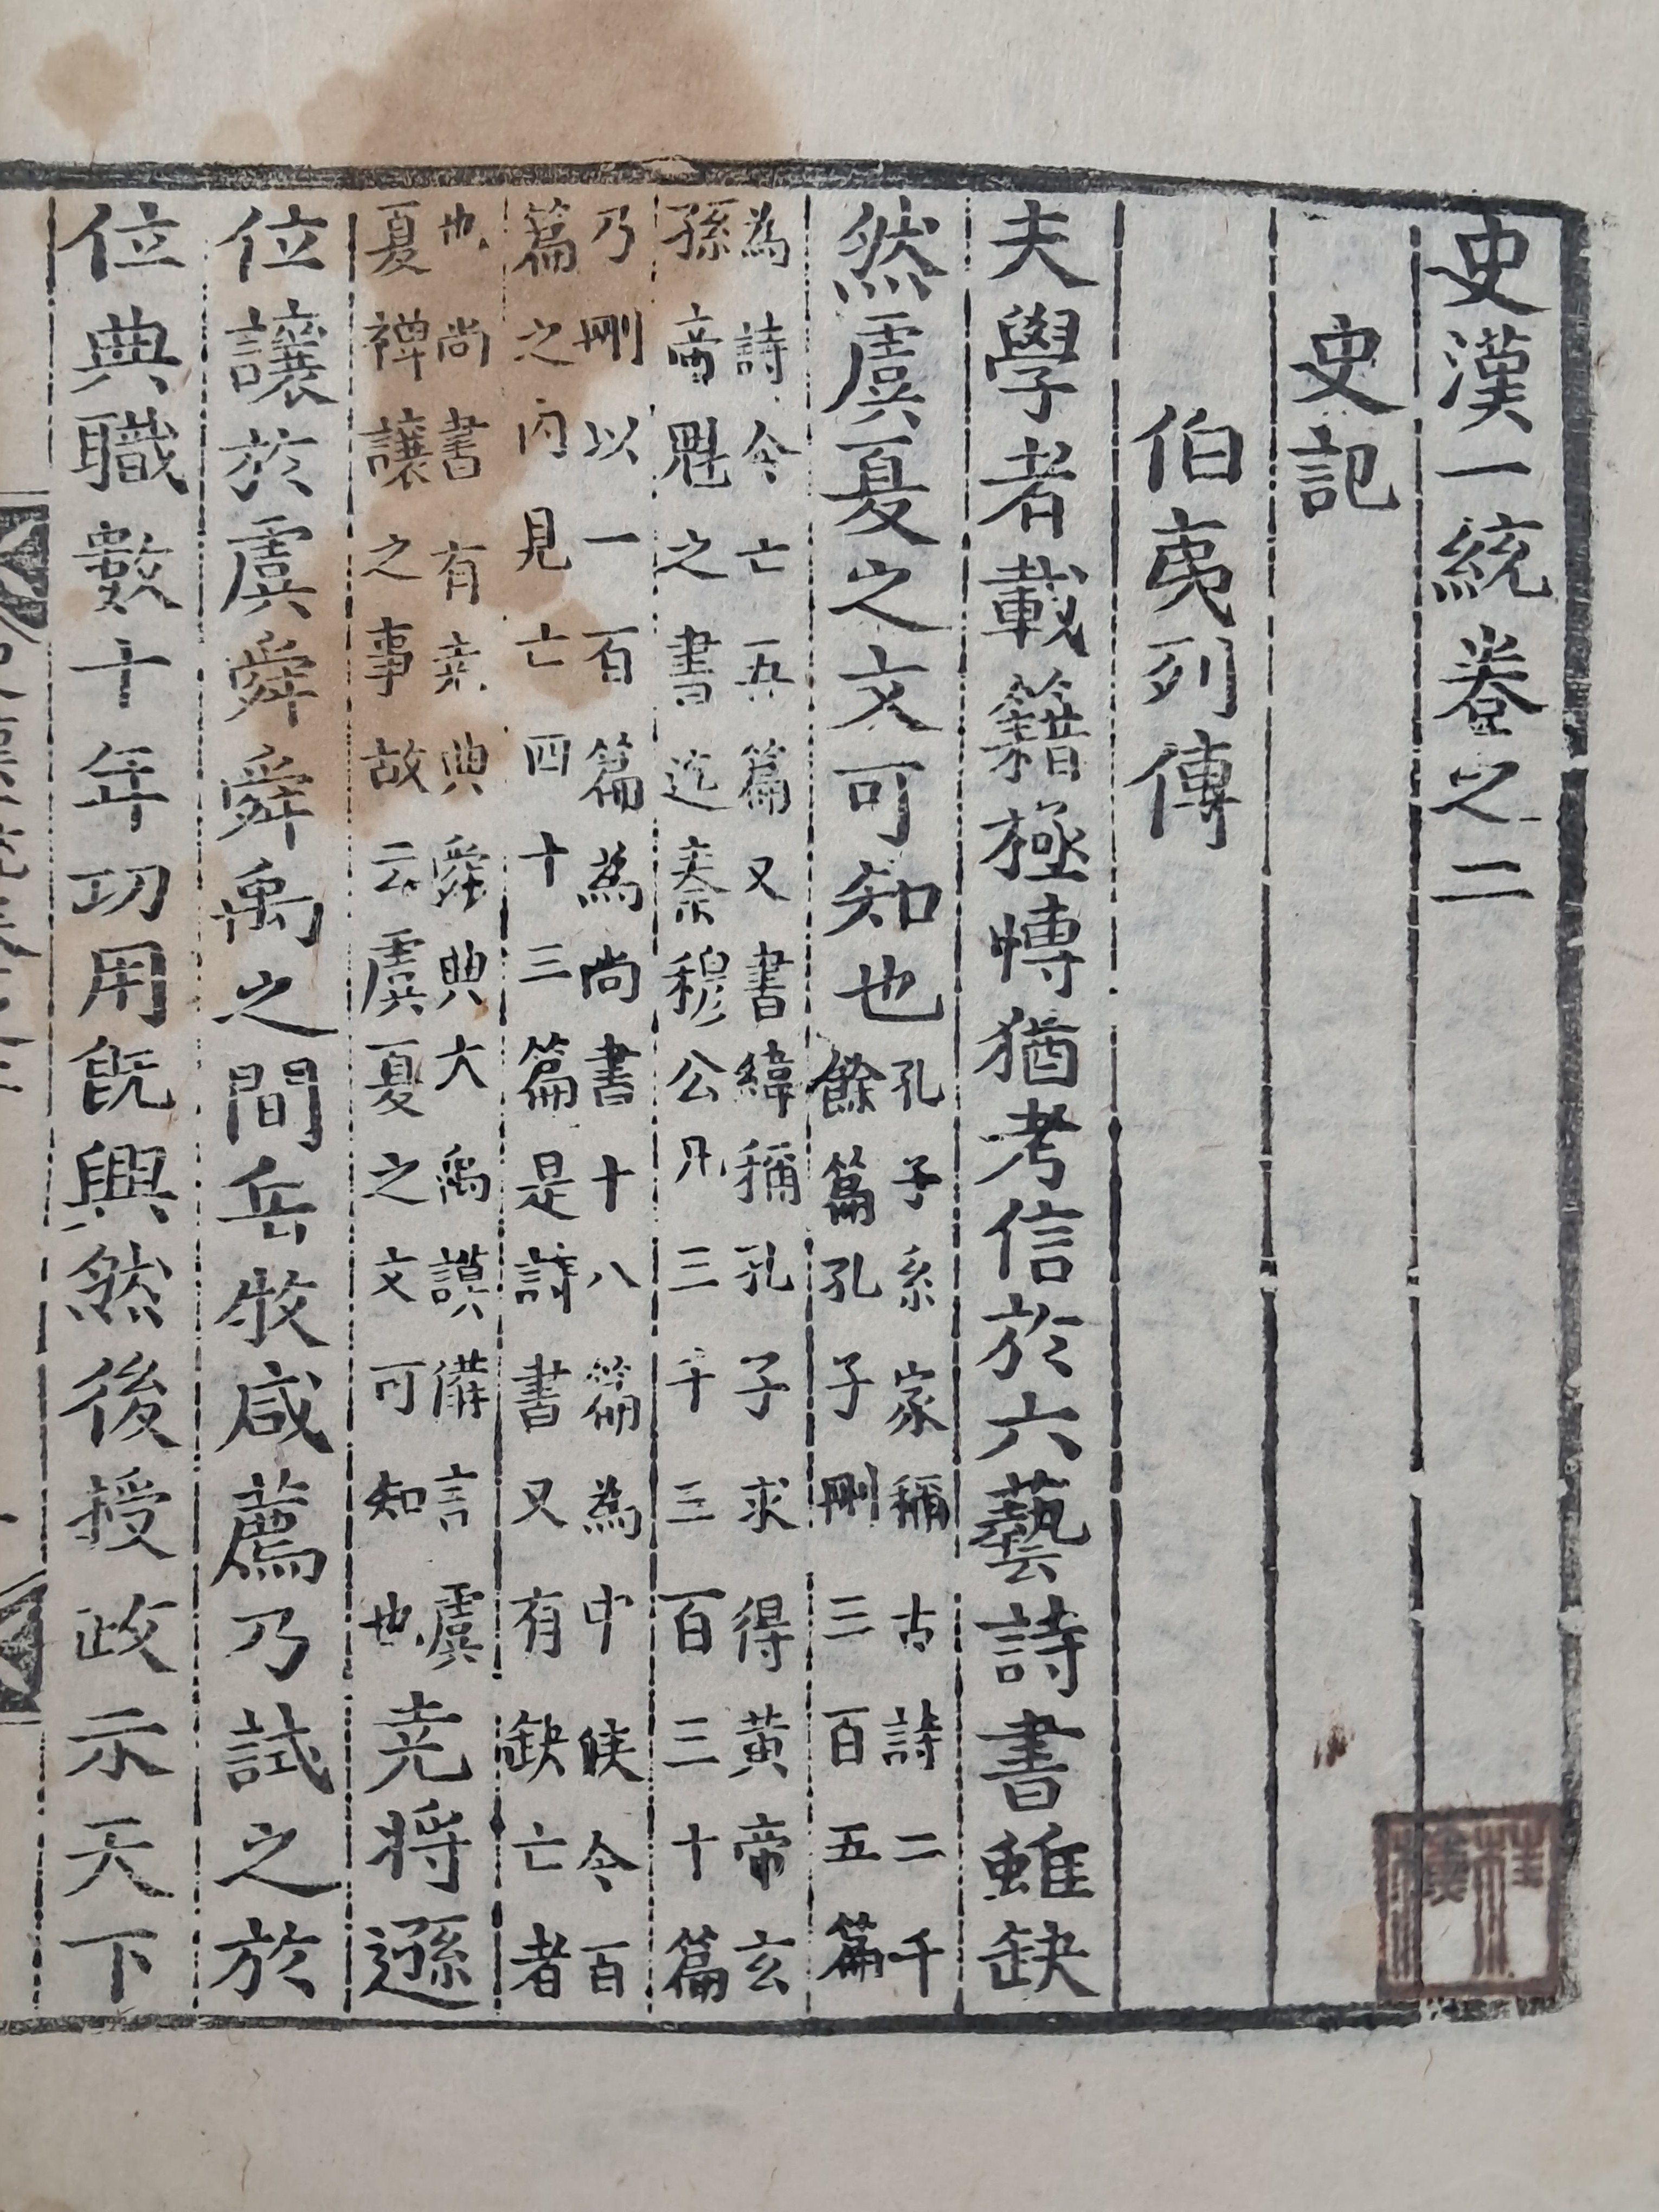 史漢一統卷之二
史記
伯夷列傳
夫學者載籍極博猶考信於六藝詩書雖缺
然虞夏之文可知也孔子系家稱古詩二千餘篇孔子刪三百五篇
為詩今亡五篇又書緯稱孔子求得黃帝玄孫帝魁之書迄秦穆公凡三千三百三十篇
乃刪以一百篇為尚書十八篇為中候今百篇之內見亡四十三篇是詩書又有缺亡者
也尚書有堯典舜典大禹謨備言虞夏禪讓之事故云虞夏之文可知也堯將遜
位讓於虞舜舜禹之間岳牧咸薦乃試之於
位典職數十年功用既興然後授政示天下